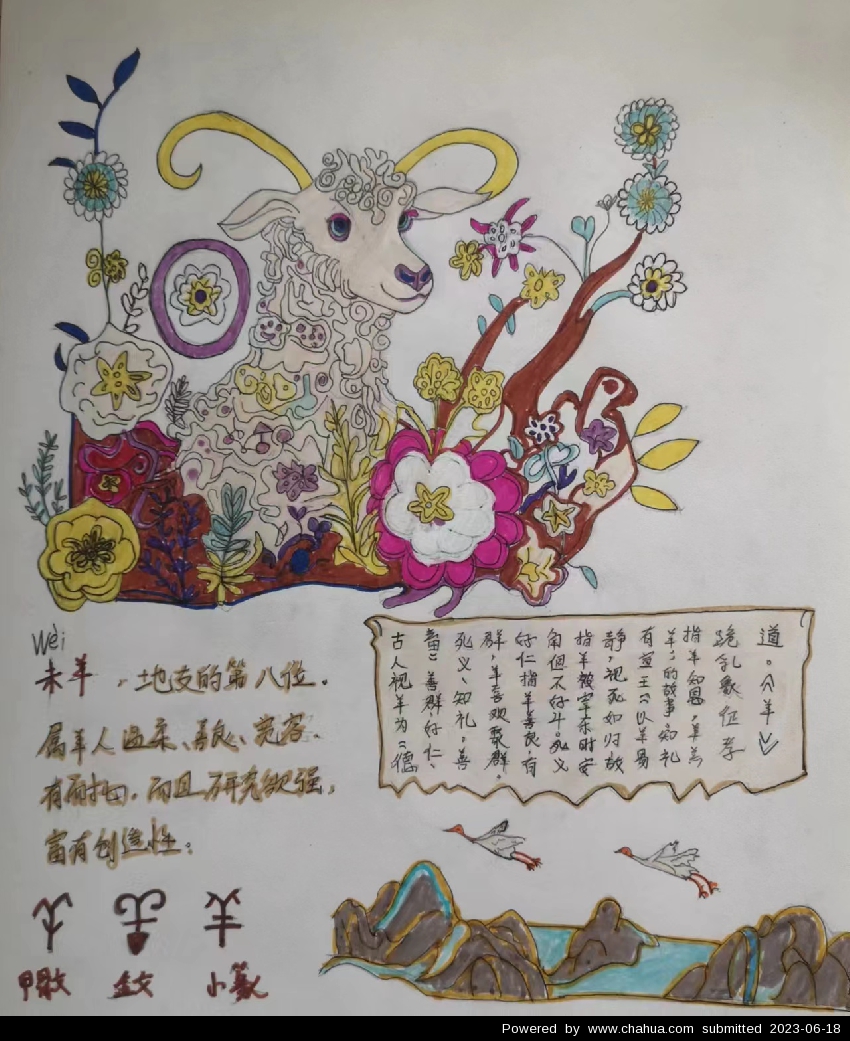 Wèi
未羊,地支的第八位。
属羊人温柔、善良、宽容。
有耐力,而且研究欲强,
富有创造性。
甲骨文 金文 小篆
古人视羊为“德
畜”善群、好仁、
死义、知礼,善
群,羊喜欢聚群。
好仁指羊善良有
角但不好斗。死义
指羊被宰杀时安
静,视死如归故
有宣王“以羊易
羊”的故事。知礼
指羊知恩,羊羔
跪乳象征孝
道。《羊》
Powered by www.chahua.com submitted 2023-06-18